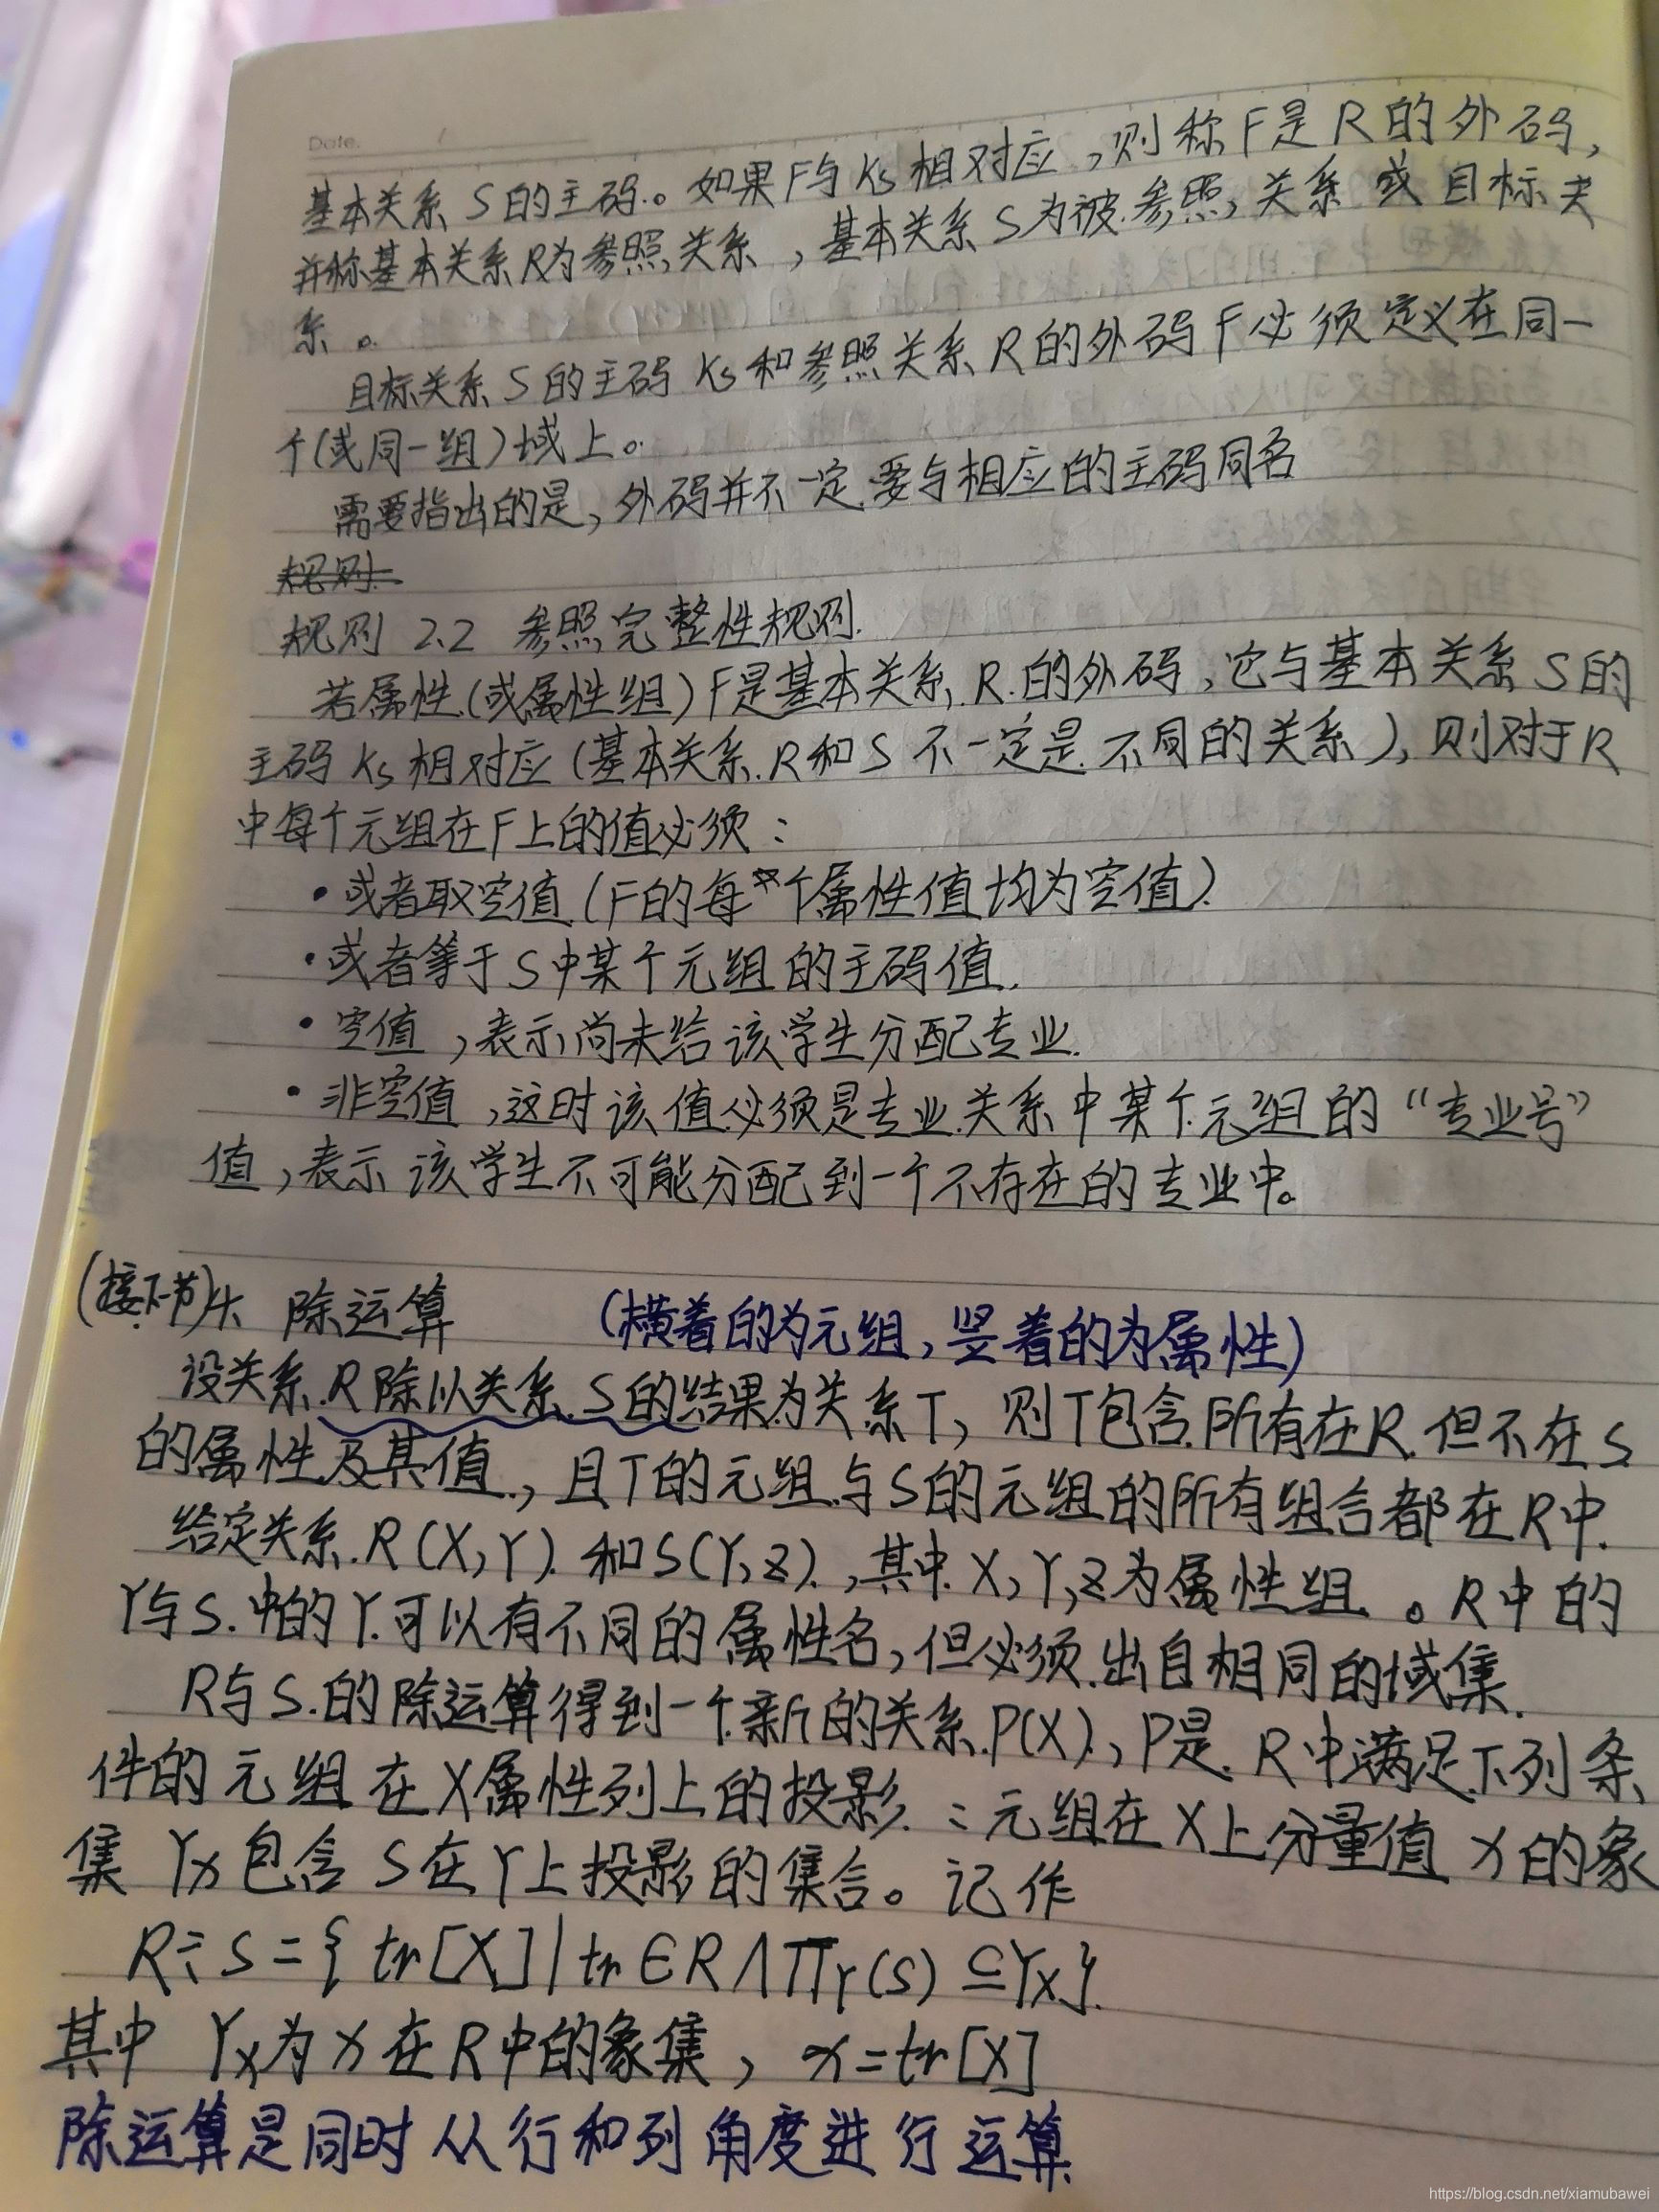 Date.
基本关系 S 的主码。如果 F与 Ks 相对应，则称 F是 R 的外码，
并称基本关系 R为参照关系，基本关系 S为被参照关系 或 目标关
系。
目标关系 S 的主码 Ks 和参照关系 R 的外码 F 必须定义在同一
个(或同一组)域上。
需要指出的是，外码并不一定要与相应的主码同名
规则
规则 2.2 参照完整性规则.
若属性(或属性组) F是基本关系 R 的外码，它与基本关系 S 的
主码 Ks 相对应(基本关系 R和 S 不一定是不同的关系)，则对于 R
中每个元组在 F上的值必须：
·或者取空值(F的每个属性值均为空值)
·或者等于 S中某个元组的主码值.
·空值，表示尚未给该学生分配专业.
·非空值，这时该值必须是专业关系中某个元组的“专业号”
值，表示该学生不可能分配到一个不存在的专业中。
(接下节)4. 除运算 (横着的为元组，竖着的为属性)
设关系 R 除以关系 S 的结果为关系 T，则T包含所有在R 但不在 S
的属性及其值，且T的元组与 S的元组的所有组合都在 R中.
给定关系 R(X,Y) 和 S(Y,Z)，其中 X,Y,Z为属性组。R中的
Y与 S 中的 Y可以有不同的属性名，但必须出自相同的域集.
R与 S 的除运算得到一个新的关系 P(X)，P是 R中满足下列条
件的元组在 X属性列上的投影：元组在 X上分量值 x 的象
集 Yx 包含 S在 Y上投影的集合。记作
R÷S={tr[X]|tr∈R∧πY(S)⊆Yx}
其中 Yx为 x在 R中的象集，x=tr[X]
除运算是同时从行和列角度进行运算
https://blog.csdn.net/xiamubawei